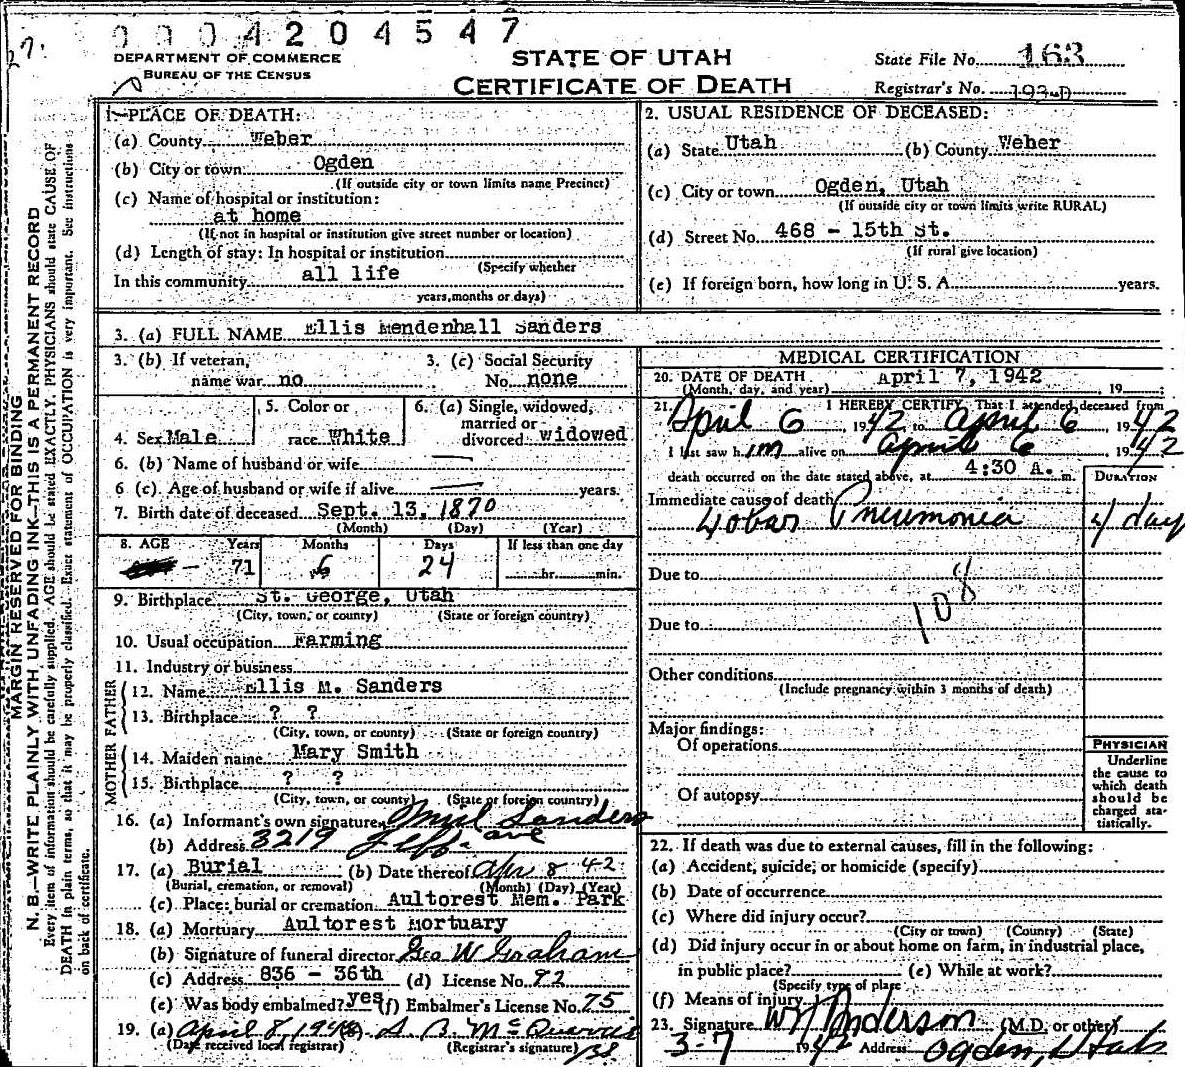 27.
0004204547
DEPARTMENT OF COMMERCE
BUREAU OF THE CENSUS
STATE OF UTAH
CERTIFICATE OF DEATH
State File No. 163
Registrar's No. 193-D
MARGIN RESERVED FOR BINDING
N. B.—WRITE PLAINLY WITH UNFADING INK—THIS IS A PERMANENT RECORD
Every item of information should be carefully supplied. AGE should be stated EXACTLY. PHYSICIANS should state CAUSE OF
DEATH in plain terms, so that it may be properly classified. Exact statement of OCCUPATION is very important. See instructions
on back of certificate.
1.—PLACE OF DEATH:
(a) County Weber
(b) City or town Ogden
(If outside city or town limits name Precinct)
(c) Name of hospital or institution:
at home
(If not in hospital or institution give street number or location)
(d) Length of stay: In hospital or institution
(Specify whether
In this community all life
years, months or days)
2. USUAL RESIDENCE OF DECEASED:
(a) State Utah (b) County Weber
(c) City or town Ogden, Utah
(If outside city or town limits write RURAL)
(d) Street No. 468 - 15th St.
(If rural give location)
(e) If foreign born, how long in U. S. A. years.
3. (a) FULL NAME Ellis Mendenhall Sanders
3. (b) If veteran, name war no
3. (c) Social Security No. none
4. Sex Male
5. Color or race White
6. (a) Single, widowed, married or divorced widowed
6. (b) Name of husband or wife
6 (c). Age of husband or wife if alive years.
7. Birth date of deceased Sept. 13, 1870
(Month) (Day) (Year)
8. AGE Years Months Days If less than one day
71 6 24 hr. min.
9. Birthplace St. George, Utah
(City, town, or county) (State or foreign country)
10. Usual occupation Farming
11. Industry or business
FATHER
12. Name Ellis M. Sanders
13. Birthplace ? ?
(City, town, or county) (State or foreign country)
MOTHER
14. Maiden name Mary Smith
15. Birthplace ? ?
(City, town, or county) (State or foreign country)
16. (a) Informant's own signature Sanders
(b) Address 3219 Jeff. ave
17. (a) Burial (b) Date thereof Apr 8 42
(Burial, cremation, or removal) (Month) (Day) (Year)
(c) Place: burial or cremation Aultorest Mem. Park
18. (a) Mortuary Aultorest Mortuary
(b) Signature of funeral director Geo W Graham
(c) Address 836 - 36th (d) License No. 92
(e) Was body embalmed? yes (f) Embalmer's License No. 75
19. (a) April 8, 1942 (b)
(Date received local registrar) (Registrar's signature)
MEDICAL CERTIFICATION
20. DATE OF DEATH April 7, 1942
(Month, day, and year) , 19 ;
21. I HEREBY CERTIFY, That I attended deceased from
April 6, 1942 to April 6, 1942
I last saw h im alive on April 6, 1942
death occurred on the date stated above, at 4:30 A. m.
DURATION
Immediate cause of death
Lobar Pneumonia 4 day
Due to
108
Due to
Other conditions
(Include pregnancy within 3 months of death)
Major findings:
Of operations
Of autopsy
PHYSICIAN
Underline
the cause to
which death
should be
charged sta-
tistically.
22. If death was due to external causes, fill in the following:
(a) Accident, suicide, or homicide (specify)
(b) Date of occurrence
(c) Where did injury occur?
(City or town) (County) (State)
(d) Did injury occur in or about home on farm, in industrial place,
in public place? (e) While at work?
(Specify type of place
(f) Means of injury
23. Signature W Anderson (M.D. or other)
3-7 1942 Address Ogden, Utah